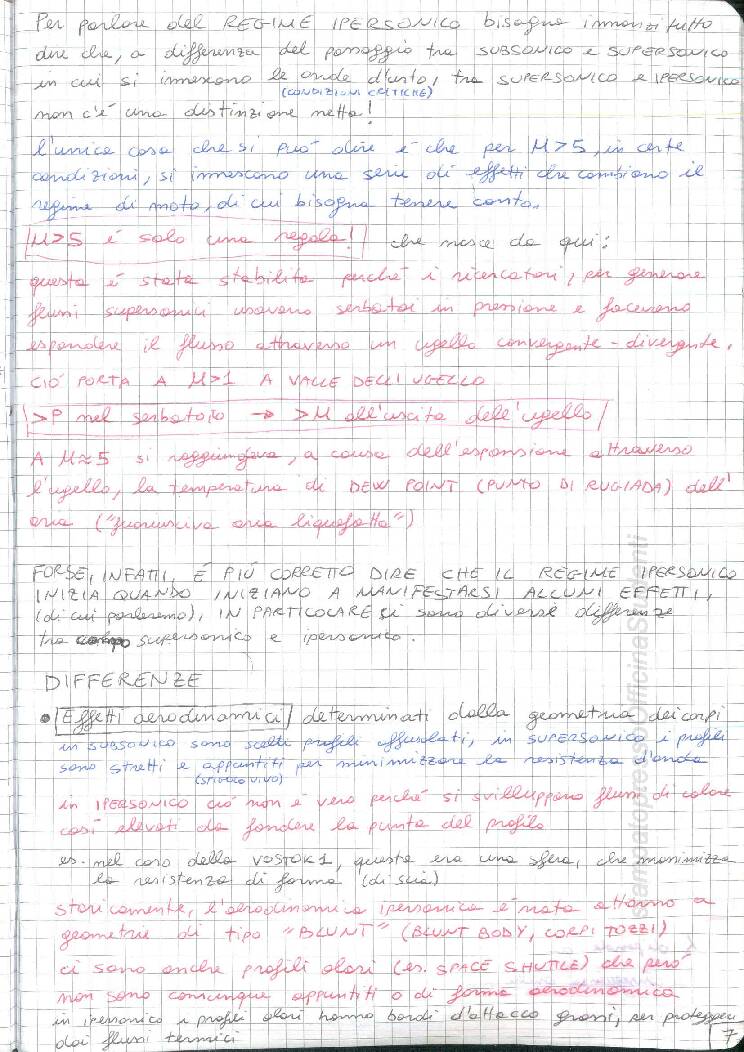 Per parlare del REGIME IPERSONICO bisogna innanzitutto
dire che, a differenza del passaggio tra SUBSONICO e SUPERSONICO
in cui si innescano le onde d'urto, tra SUPERSONICO e IPERSONICO
(CONDIZIONI CRITICHE)
non c'é una distinzione netta!
l'unica cosa che si puó dire é che per M>5, in certe
condizioni, si innescano una serie di effetti che cambiano il
regime di moto, di cui bisogna tenere conto.
M>5 é solo una regola! che nasce da qui:
questa é stata stabilita perché i ricercatori, per generare
flussi supersonici usavano serbatoi in pressione e facevano
espandere il flusso attraverso un ugello convergente-divergente.
CIÓ PORTA A M>1 A VALLE DELL'UGELLO
>P nel serbatoio → >M all'uscita dell'ugello
A M≈5 si raggiungeva, a causa dell'espansione attraverso
l'ugello, la temperatura di DEW POINT (PUNTO DI RUGIADA) dell'
aria ("fuoriusciva aria liquefatta")
FORSE, INFATTI, É PIÚ CORRETTO DIRE CHE IL REGIME IPERSONICO
INIZIA QUANDO INIZIANO A MANIFESTARSI ALCUNI EFFETTI,
(di cui parleremo), IN PARTICOLARE ci sono diverse differenze
tra supersonico e ipersonico.
DIFFERENZE
• Effetti aerodinamici determinati dalla geometria dei corpi
in SUBSONICO sono scelti profili affusolati, in SUPERSONICO i profili
sono stretti e appuntiti per minimizzare la resistenza d'onda
(SPIGOLO VIVO)
in IPERSONICO ció non é vero perché si sviluppano flussi di calore
cosí elevati da fondere la punta del profilo
es. nel caso della VOSTOK 1, questa era una sfera, che massimizza
la resistenza di forma (di scia)
storicamente, l'aerodinamica ipersonica é nata attorno a
geometrie di tipo "BLUNT" (BLUNT BODY, CORPI TOZZI)
ci sono anche profili alari (es. SPACE SHUTTLE) che peró
non sono comunque appuntiti o di forma aerodinamica
in ipersonico i profili alari hanno bordi d'attacco grossi, per proteggere
dai flussi termici
7
stampatopressoOfficinaStudenti